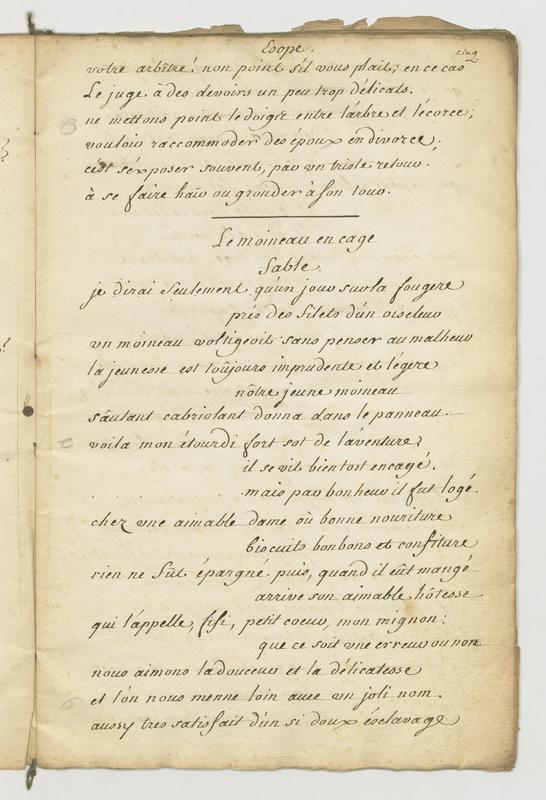 Esope.
cinq
votre arbitre! non point s'il vous plait; en ce cas
Le juge à des devoirs un peu trop délicats.
ne mettons point le doigt entre l'arbre et l'écorce;
vouloir raccommoder des époux en divorce.
c'est s'exposer souvent, par un triste retour.
à se faire haïr ou gronder à son tour.
Le moineau en cage
fable.
je dirai seulement qu'un jour sur la fougere
près des filets d'un oiseleur
un moineau voltigeoit sans penser au malheur
la jeunesse est toûjours imprudente et légere
nôtre jeune moineau
sautant cabriolant donna dans le panneau.
voila mon étourdi fort sot de l'aventure;
il se vit bientost encagé.
mais par bonheur il fut logé.
chez une aimable dame où bonne nouriture
biscuits bonbons et confiture
rien ne fût épargné. puis, quand il eût mangé
arrive son aimable hôtesse
qui l'appelle, fifi, petit coeur, mon mignon:
que ce soit une erreur ou non.
nous aimons la douceur et la délicatesse
et l'on nous menne loin avec un joli nom.
aussy tres satisfait d'un si doux esclavage